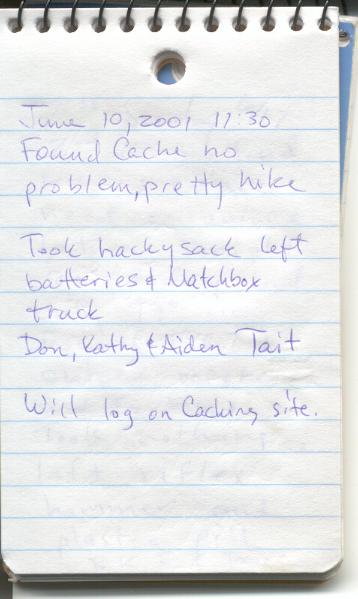 June 10, 2001 11:30
Found Cache no
problem, pretty hike
Took hacky sack left
batteries & Matchbox
truck
Don, Kathy & Aiden Tait
Will log on Caching site.